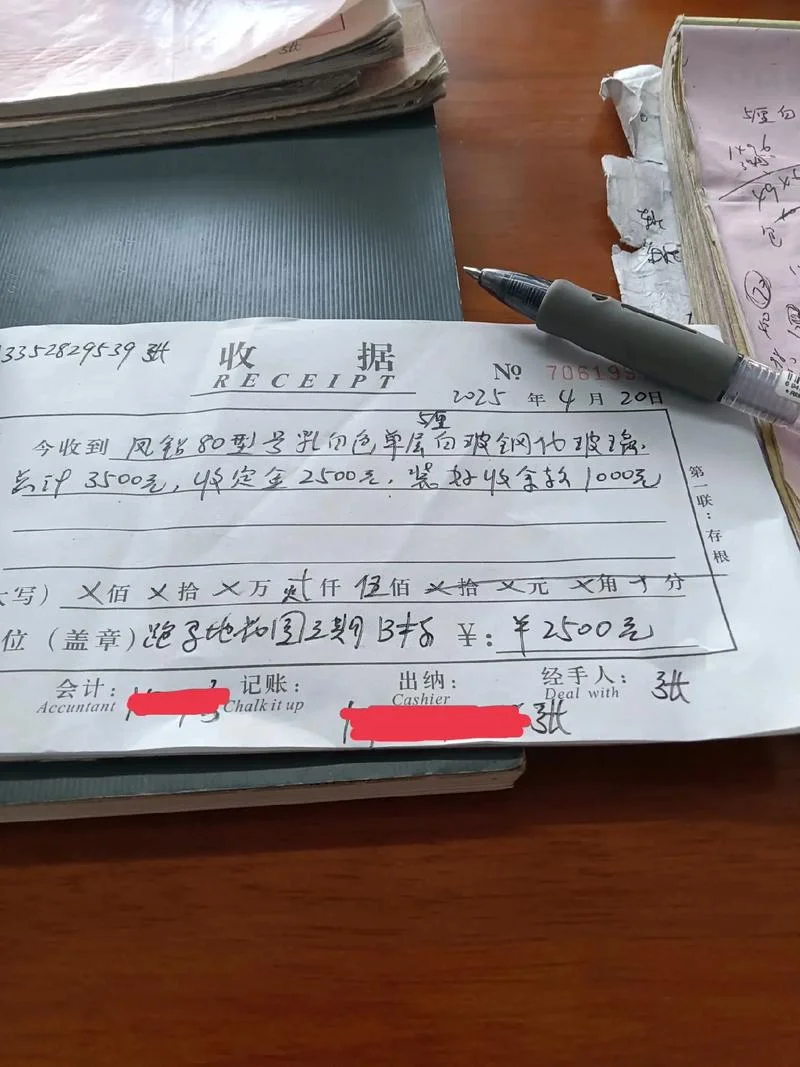 3352829539 张
收 据
RECEIPT
№ 706195
2025 年 4 月 20 日
5厘
今收到 凤铝80型号乳白色单层白玻钢化玻璃.
总计 3500元, 收定金2500元, 装好收余款1000元
第一联:存根
大写) ㄨ佰 ㄨ拾 ㄨ万 贰仟 伍佰 ㄨ拾 ㄨ元 ㄨ角 ㄨ分
位 (盖章) 跑子地 园三期 ¥: ¥2500元
会计: 记账: 出纳: 经手人: 张
Accuntant Chalk it up Cashier Deal with
张
5厘白